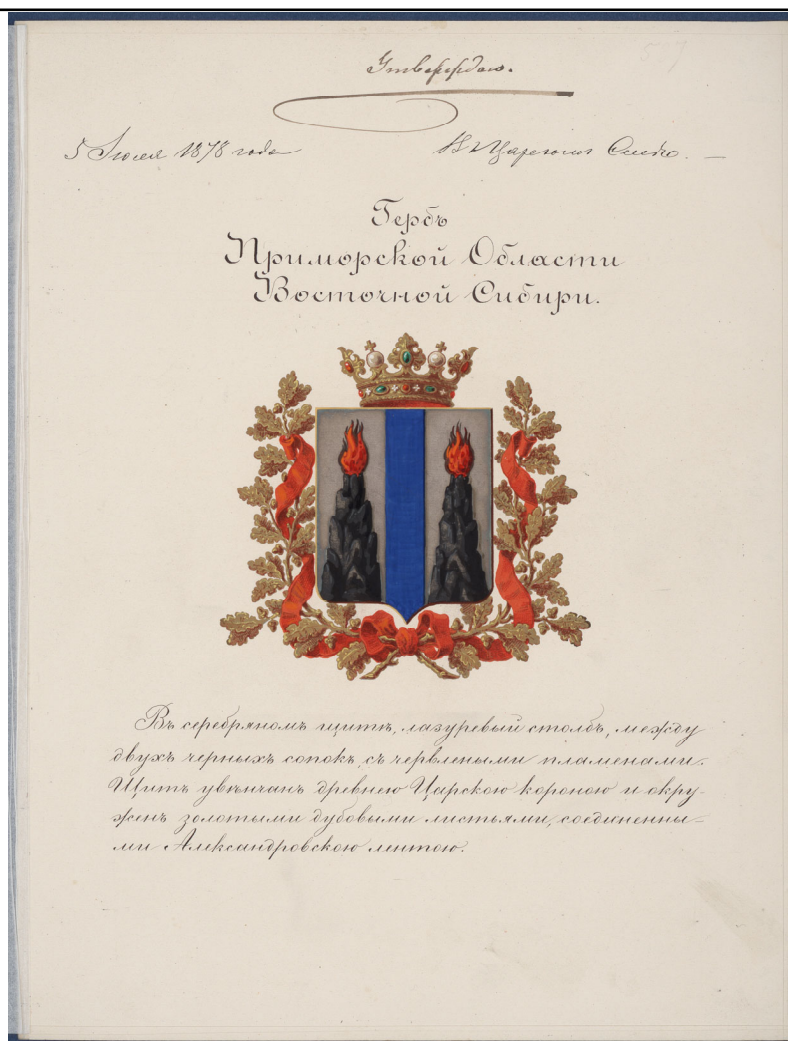 Утверждаю.
57
5 Іюля 1878 года
Въ Царскомъ Селѣ.
Гербъ
Приморской Области
Восточной Сибири.
Въ серебряномъ щитѣ, лазуревый столбъ, между
двухъ черныхъ сопокъ, съ червлеными пламенами.
Щитъ увѣнчанъ древнею Царскою короною и окру-
женъ золотыми дубовыми листьями, соединенны-
ми Александровскою лентою.